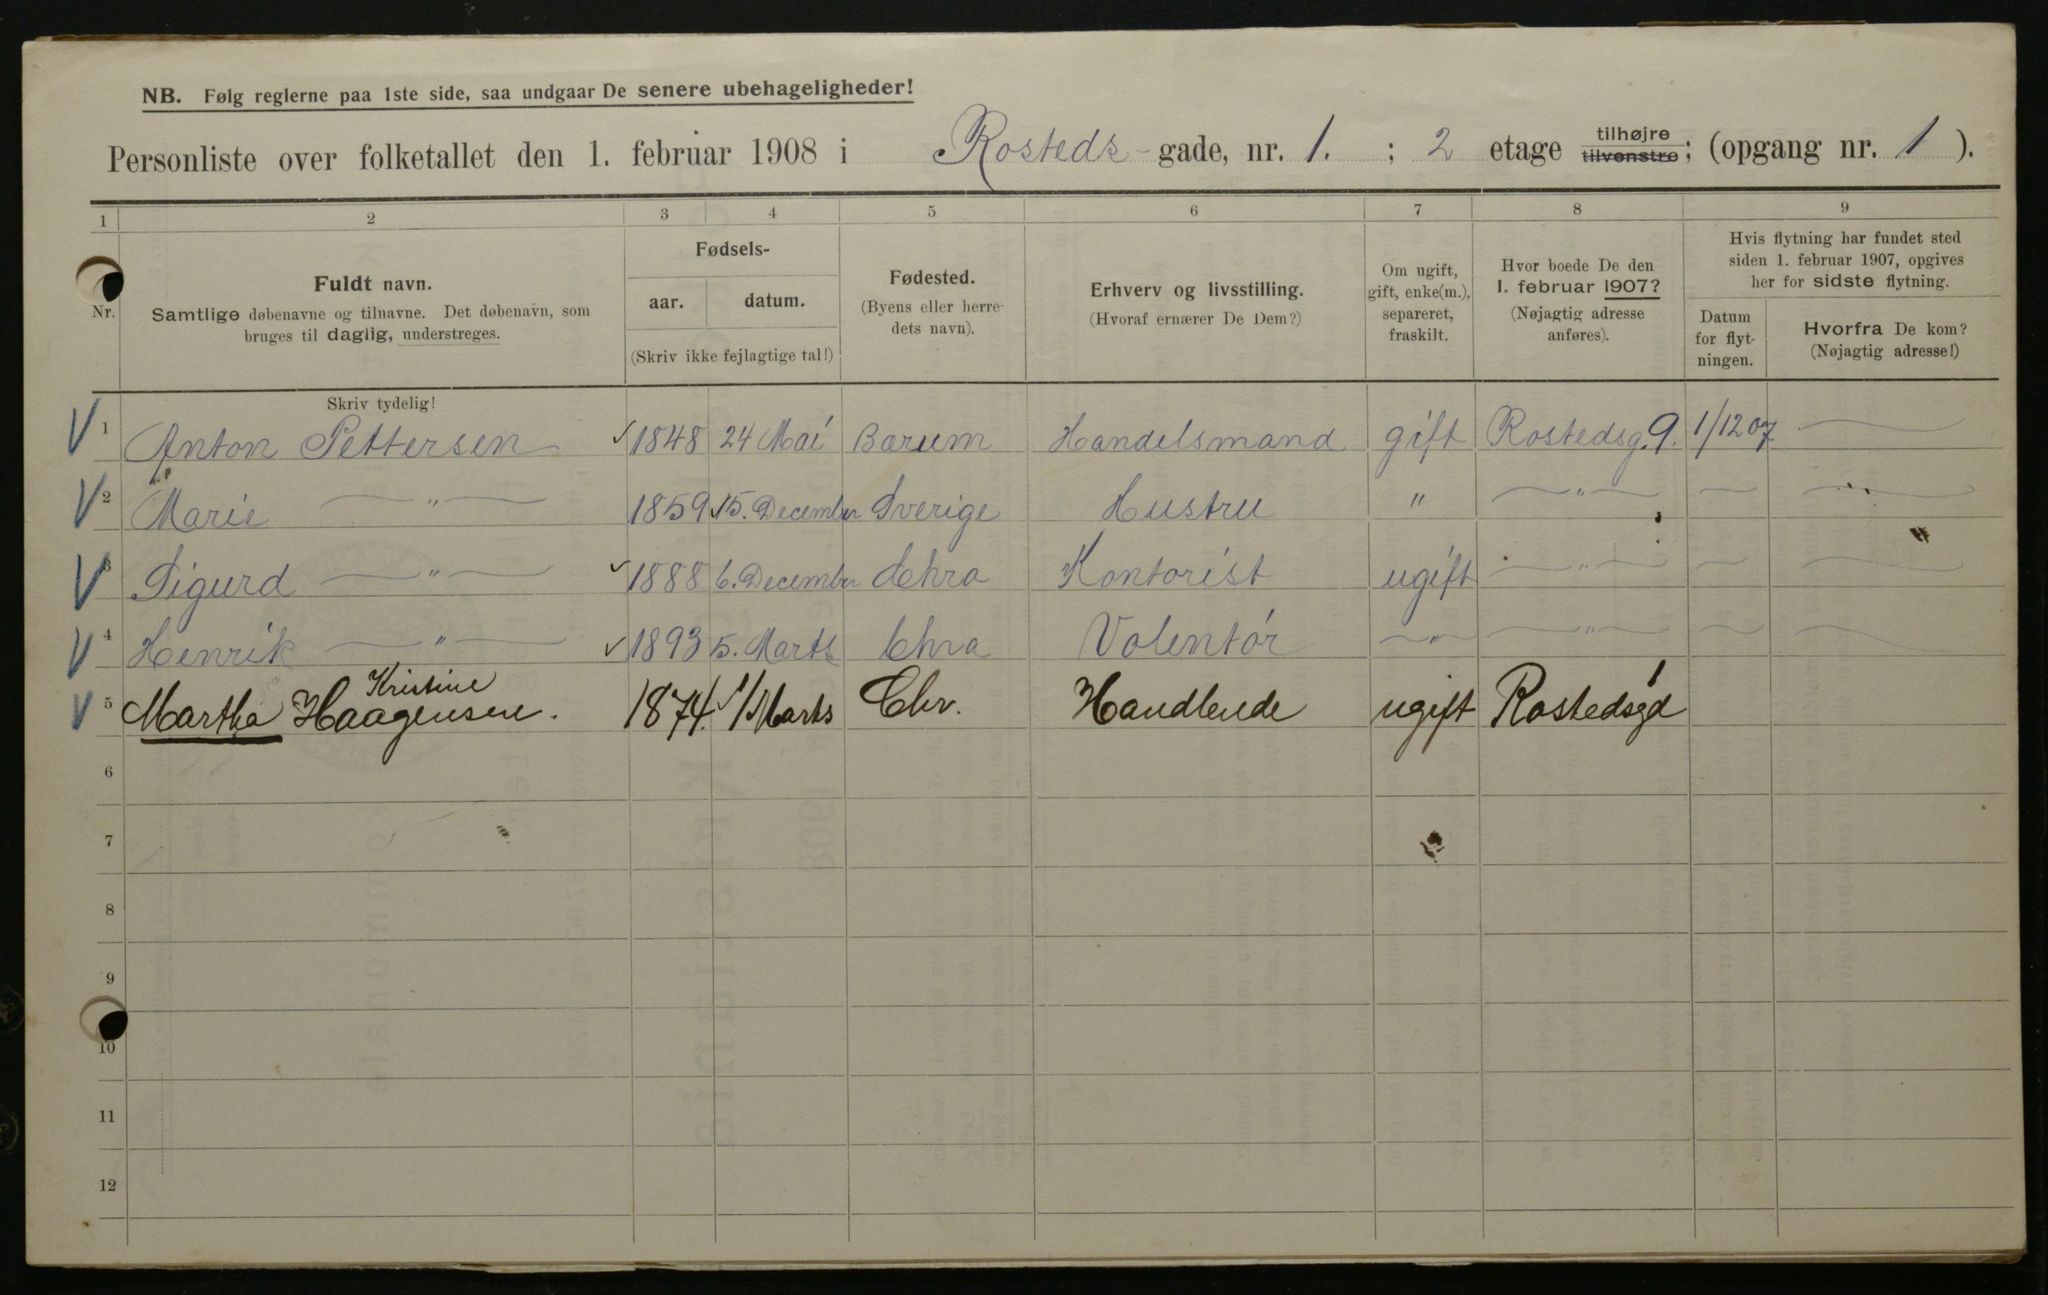 NB. Følg reglerne paa 1ste side, saa undgaar De senere ubehageligheder!
Personliste over folketallet den 1. februar 1908 i Rosteds- gade, nr. 1. ; 2 etage tilhøjre tilvenstre; (opgang nr. 1 ).
1 2 3 4 5 6 7 8 9
Nr.
Fuldt navn.
Samtlige døbenavne og tilnavne. Det døbenavn, som
bruges til daglig, understreges.
Fødsels-
aar. datum.
(Skriv ikke fejlagtige tal!)
Fødested.
(Byens eller herre-
dets navn).
Erhverv og livsstilling.
(Hvoraf ernærer De Dem?)
Om ugift,
gift, enke(m.),
separeret,
fraskilt.
Hvor boede De den
1. februar 1907?
(Nøjagtig adresse
anføres).
Hvis flytning har fundet sted
siden 1. februar 1907, opgives
her for sidste flytning.
Datum
for flyt-
ningen.
Hvorfra De kom?
(Nøjagtig adresse!)
Skriv tydelig!
V 1 Anton Pettersen ✓ 1848 24 Mai Barum Handelsmand gift Rostedsg. 9. 1/12 07 —
V 2 Marie — " — 1859 ✓ 15. December Sverige Hustru " — " — — —
V 3 Sigurd — " — ✓ 1888 6. December Chra Kontorist ugift — " — — —
V 4 Henrik — " — ✓ 1893 5. Marts Chra Volentör — " — — " — — —
V 5 Martha Kristine Haagensen. 1874. 1/ Marts Chr. Handlende ugift Rostedsgd 1
6
7
8
9
10
11
12